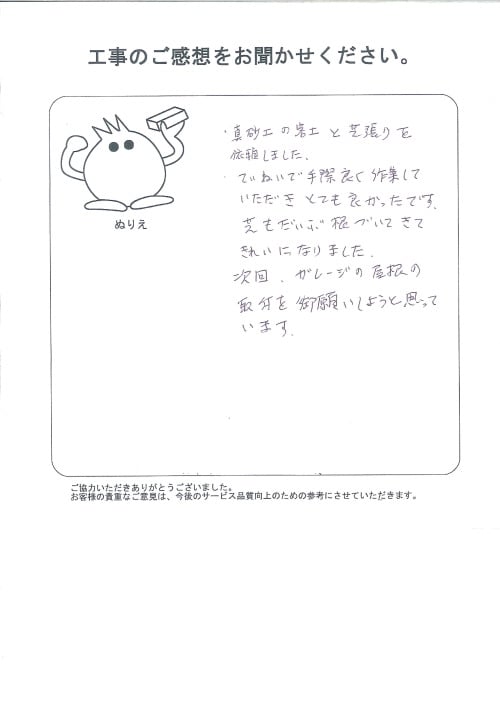 工事のご感想をお聞かせください。
ぬりえ
・真砂土の客土と芝張りを
依頼しました.
・ていねいで手際良く作業して
いただき とても良かったです.
芝もだいぶ根づいてきて
きれいになりました.
次回、ガレージの屋根の
取付を御願いしようと思って
います.
ご協力いただきありがとうございました。
お客様の貴重なご意見は、今後のサービス品質向上のための参考にさせていただきます。